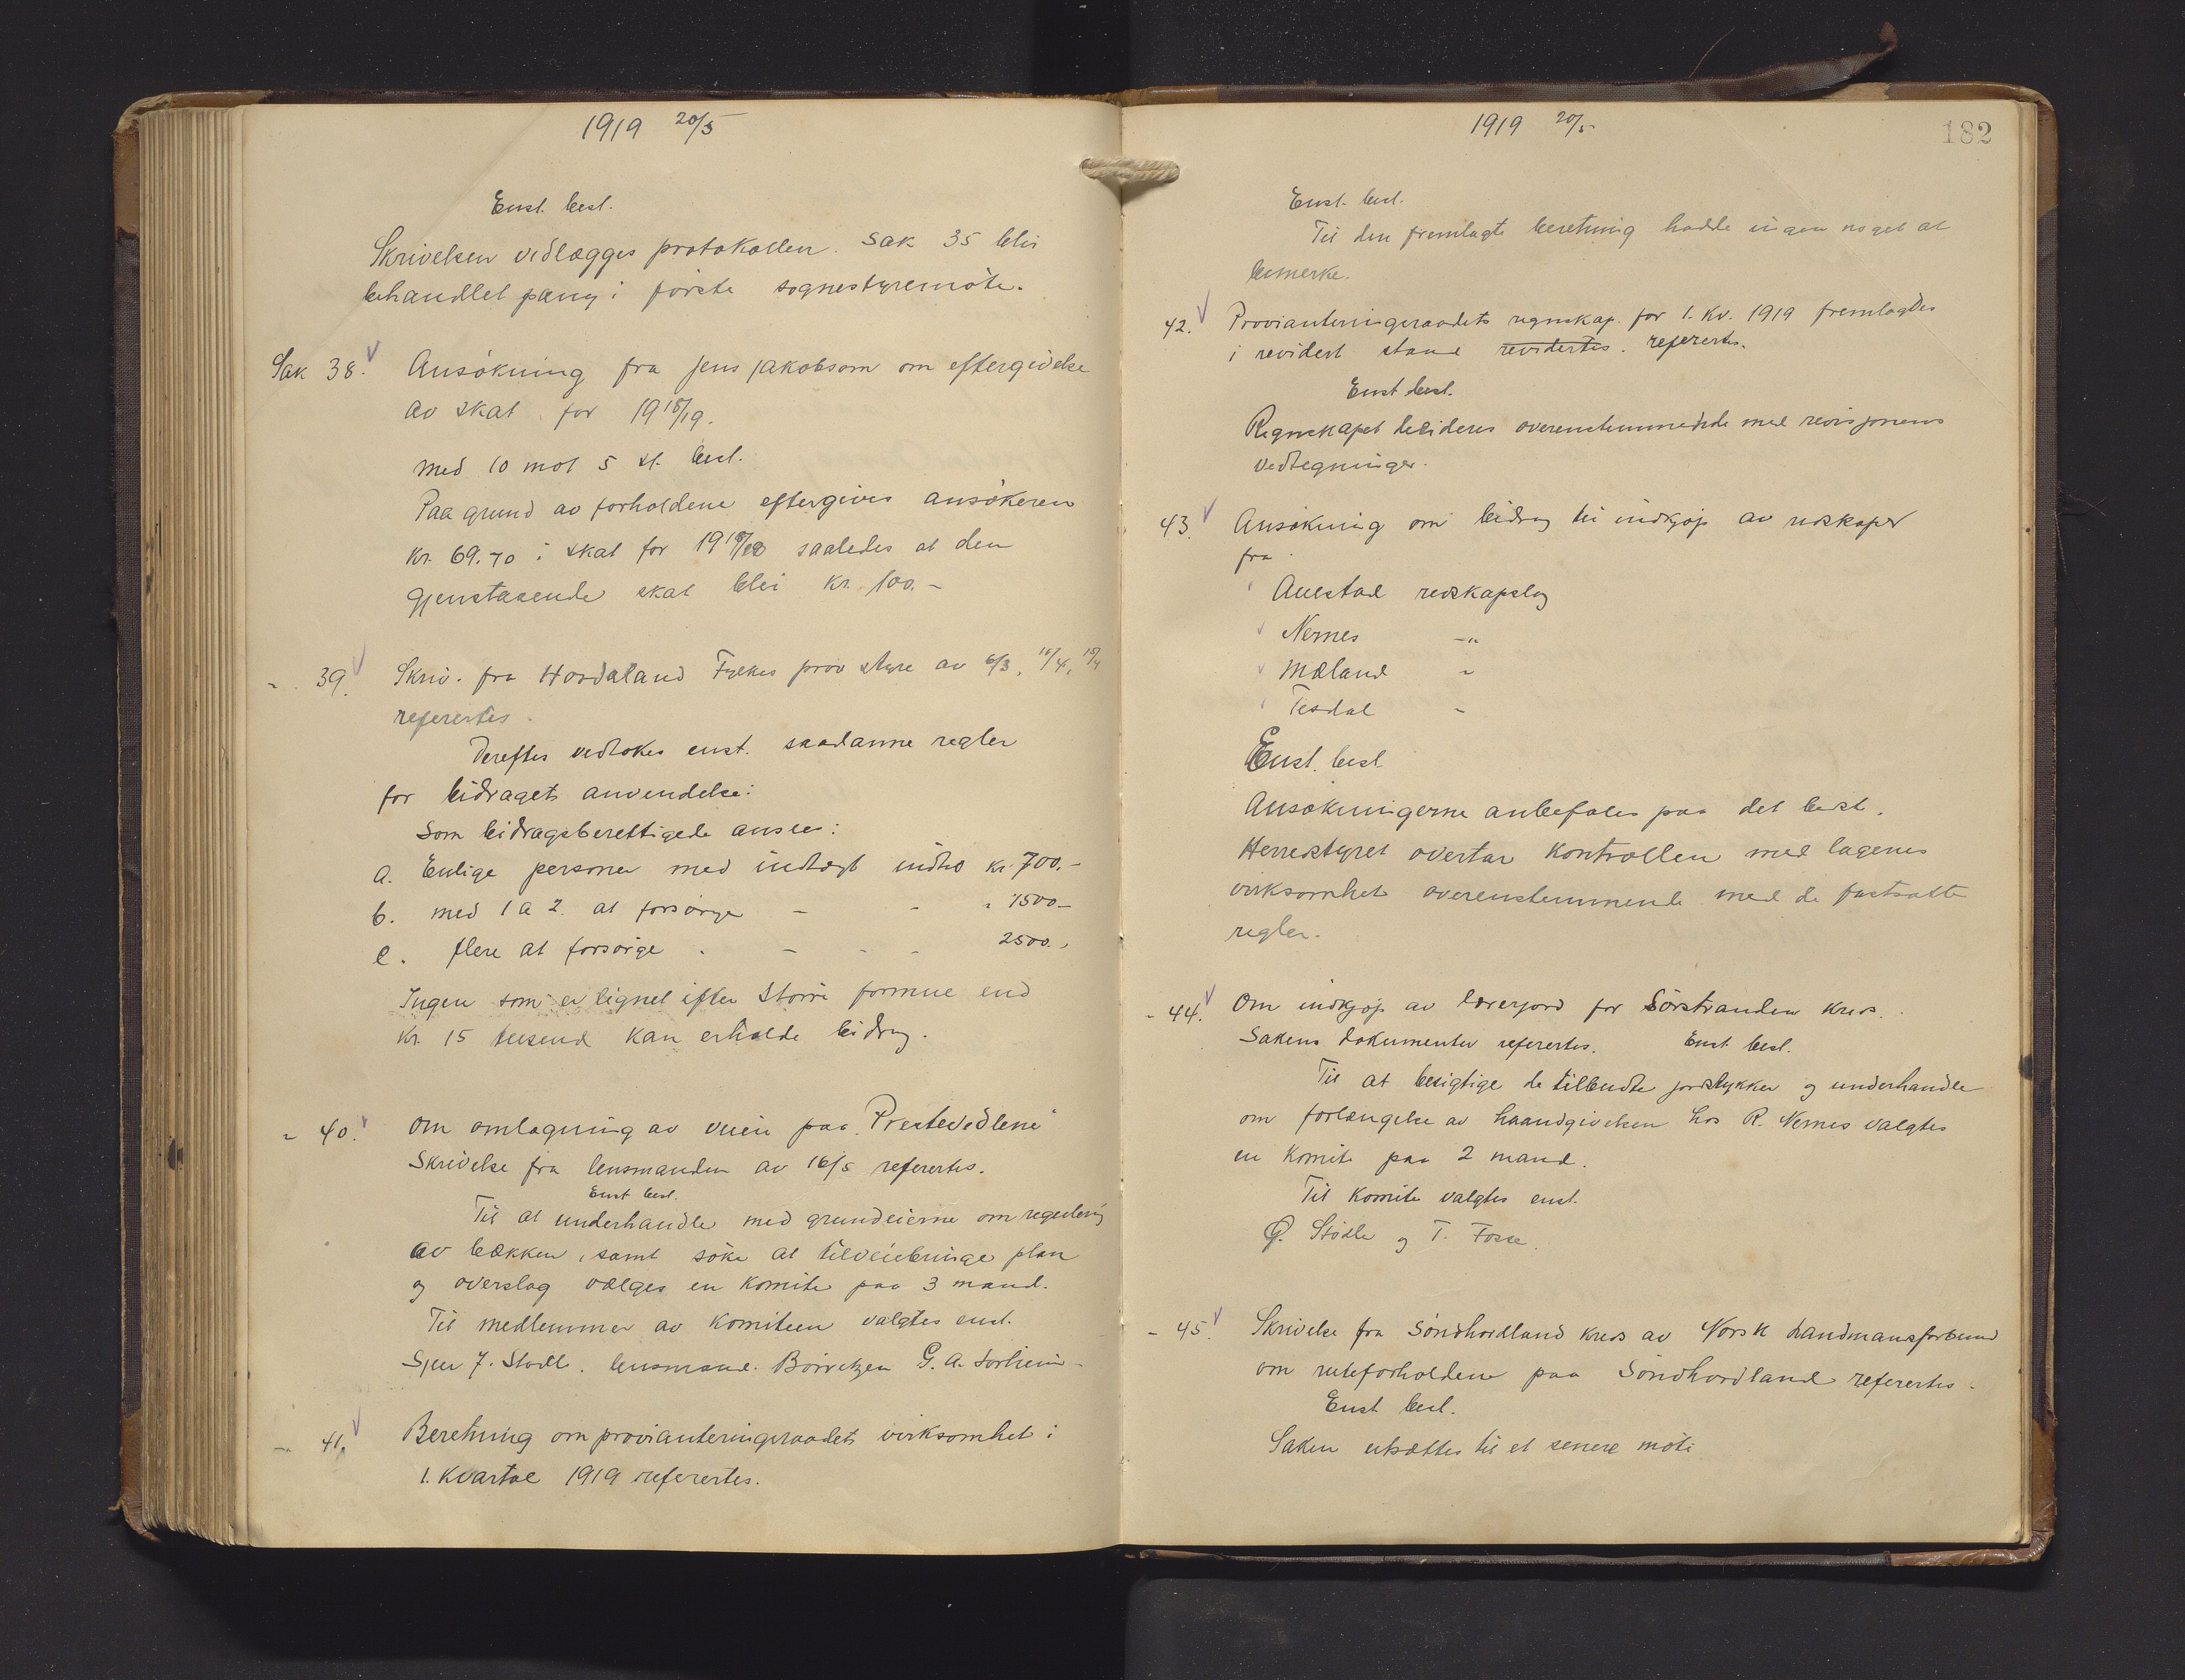 1919 20/5
Enst. besl.
Skrivelsen vedlægges protokollen. Sak 35 blir
behandlet paany i förste sognestyremöte.
Sak 38. Ansökning fra Jens Jakobsom om eftergivelse
av skat for 1918/19.
Med 10 mot 5 st. besl.
Paa grund av forholdene eftergives ansökeren
kr. 69.70 i skat for 1918/19 saaledes at den
gjenstaaende skat blir kr. 100.-
- 39. Skriv. fra Hordaland Fylkes prov styre av 6/3, 11/4, 15/4
referertes.
Derefter vedtokes enst. saadanne regler
for bidragets anvendelse:
Som bidragsberettigede ansees:
a. Enlige personer med indtægt indtil kr. 700.-
b. med 1 a 2. at forsörge - - " 1500-
c. flere at forsörge . - - - 2500.-
Ingen som er lignet efter större formue end
kr. 15 tusend kan erholde bidrag.
- 40. Om omlægning av veien paa "Prestevedlene"
Skrivelse fra lensmanden av 16/5 referertes.
Enst besl.
Til at underhandle med grundeierne om regulering
av bækken, samt söke at tilveiebringe plan
og overslag vælges en komite paa 3 mand.
Til medlemmer av komiteen valgtes enst.
Sjur J. Stødle. lensmand. Börretzen G. A. Sorheim-
- 41. Beretning om provianteringsraadets virksomhet i
1. kvartal 1919 referertes.
1919 20/5
182
Enst. besl.
Til den fremlagte beretning hadde ingen noget at
bemerke.
42. Provianteringsraadets regnskap for 1. kv. 1919 fremlagdes
i revidert stand revidertes. referertes.
Enst besl.
Regnskapet desideres overenstemmende med revisjonens
vedtegninger.
43. Ansökning om bidrag til indkjöp av redskaper
fra
Auestad redskapslag
Nernes -"-
Mæland "
Tesdal "
Enst. besl.
Ansökningerne anbefales paa det beste.
Herredstyret overtar kontrollen med lagenes
virksomhet overenstemmende med de fastsatte
regler.
- 44. Om indkjöp av lærerjord for Sörstranden kreds.
Sakens dokumenter referertes. Enst. besl.
Til at besigtige de tilbudte jordstykker og underhandle
om forlængelse av haandgivelsen hos R. Nernes valgtes
en komite paa 2 mand.
Til komite valgtes enst.
Ø. Stødle og T. Fosse.
- 45. Skrivelse fra Söndhordland kreds av Norsk Landmansforbund
om ruteforholdene paa Söndhordland referertes.
Enst besl.
Saken utsættes til et senere möte